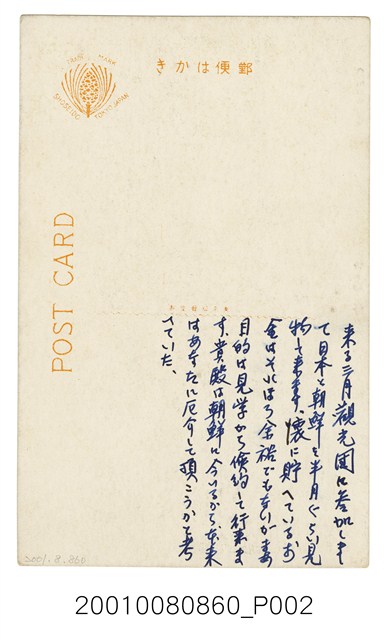 郵便はかき
TRADE MARK
TOKYO JAPAN
POST CARD
来る三月観光団に参加しま
て日本と朝鮮を半月ぐらい見
物して来ます、懐に貯へているお
金はそれほど余裕でもないが
目的は見学から倹約して行きま
す、貴殿は朝鮮に今いるから本来
はあなたに厄介して頂こうかと考
えていた、
2001.8.860
20010080860_P002